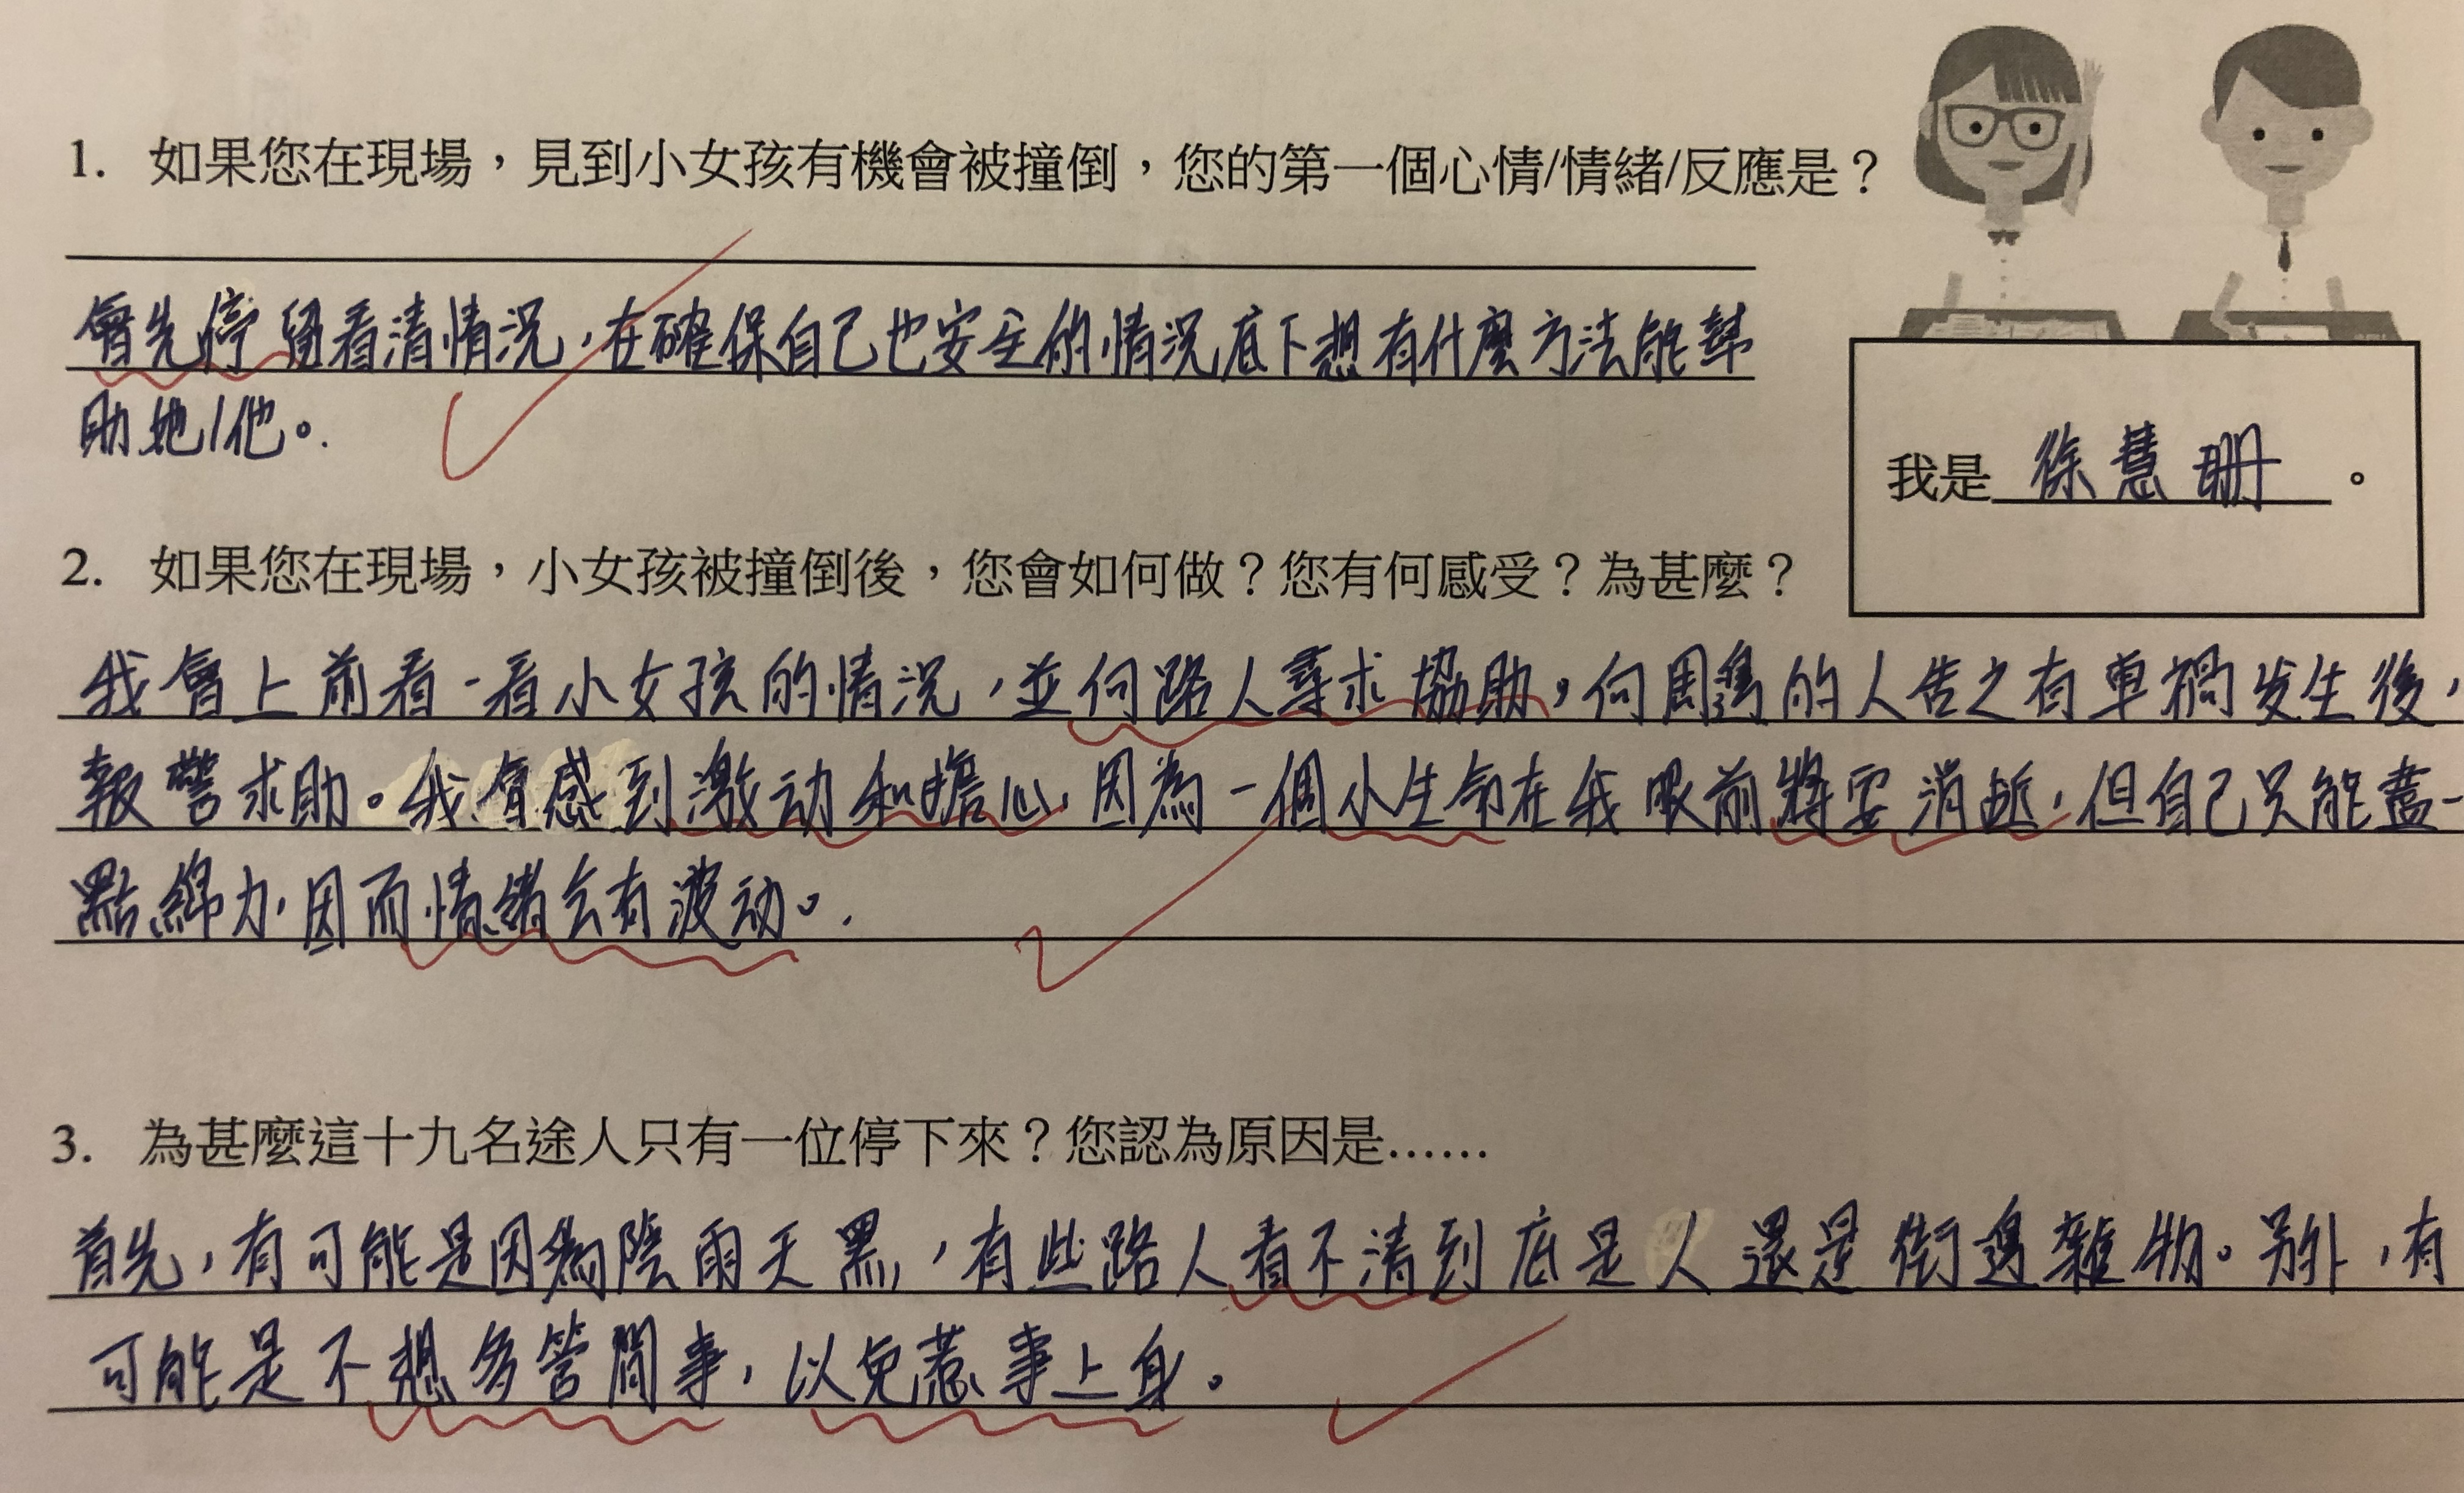 1. 如果您在現場，見到小女孩有機會被撞倒，您的第一個心情/情緒/反應是？
會先停留看清情況，在確保自己也安全的情況底下想有什麼方法能幫
助她/他。
我是徐慧珊。
2. 如果您在現場，小女孩被撞倒後，您會如何做？您有何感受？為甚麼？
我會上前看一看小女孩的情況，並向路人尋求協助，向周圍的人告之有車禍发生後，
報警求助。我會感到激动和擔心，因為一個小生命在我眼前將要消逝，但自己只能盡一
點綿力，因而情緒会有波动。
3. 為甚麼這十九名途人只有一位停下來？您認為原因是……
首先，有可能是因為陰雨天黑，有些路人看不清到底是人還是街邊雜物。另外，有
可能是不想多管閒事，以免惹事上身。